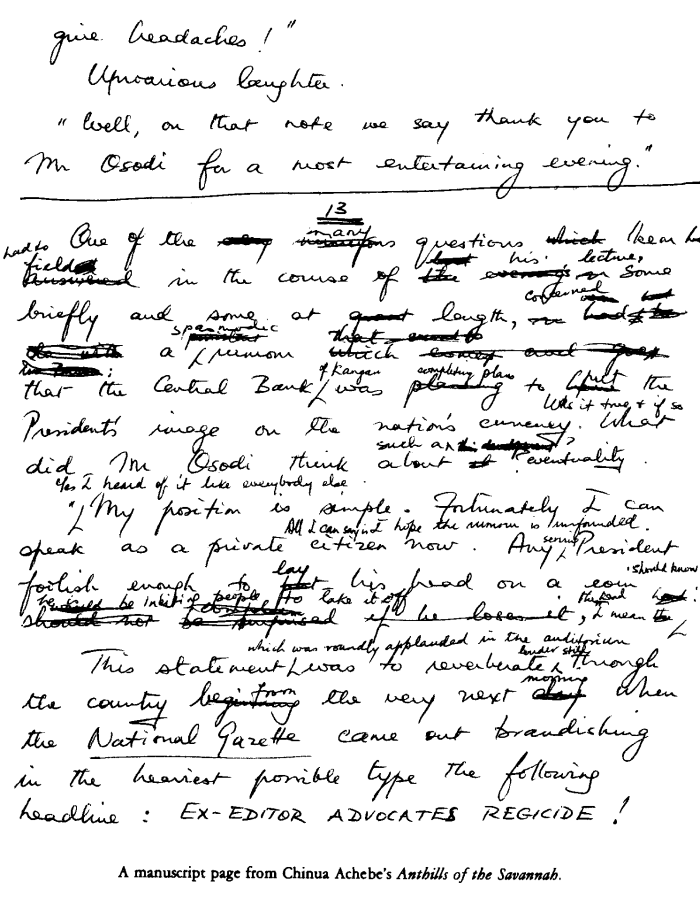 give headaches!"
Uproarious laughter.
"Well, on that note we say thank you to
Mr Osodi for a most entertaining evening."
13
many
One of the questions which Ikem had
had to field his lecture,
in the course of Some
concerned
briefly and some at great length,
spasmodic
a rumour which
of Kangan completing plans
that the Central Bank was planning to put the
Was it true & if so
President's image on the nation's currency. What
such an
did Mr Osodi think about eventuality?
Yes I heard of it like everybody else.
"My position is simple. Fortunately I can
All I can say is I hope the rumour is unfounded.
speak as a private citizen now. Any serving President
lay should know
foolish enough to put his head on a coin
he would be inciting people to take it off; the head
should not be surprised if he loses it, I mean the
which was roundly applauded in the auditorium
This statement was to reverberate louder still through
from morning
the country beginning the very next day when
the National Gazette came out brandishing
in the heaviest possible type the following
headline: EX-EDITOR ADVOCATES REGICIDE!
A manuscript page from Chinua Achebe's Anthills of the Savannah.